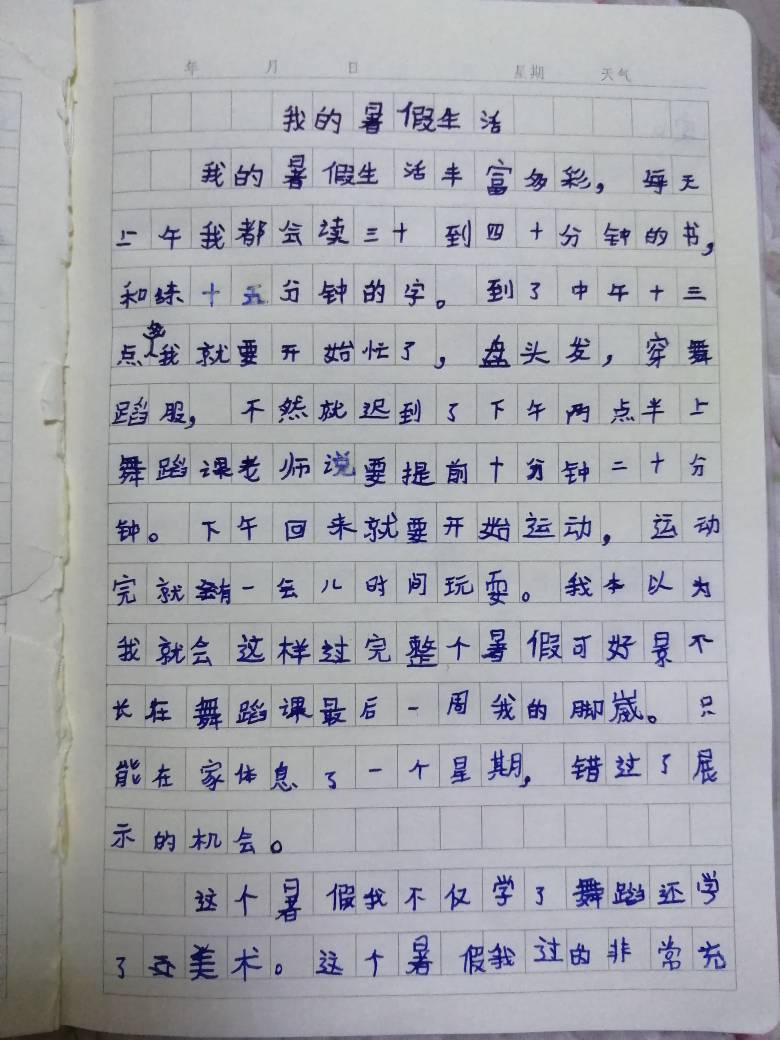 年 月 日 星期 天气
我的暑假生活
我的暑假生活丰富多彩，每天
上午我都会读三十到四十分钟的书，
和练十五分钟的字。到了中午十三
点我就要开始忙了，盘头发，穿舞
蹈服，不然就迟到了下午两点半上
舞蹈课老师说要提前十分钟二十分
钟。下午回来就要开始运动，运动
完就有一会儿时间玩耍。我本以为
我就会这样过完整个暑假可好景不
长在舞蹈课最后一周我的脚崴。只
能在家体息了一个星期，错过了展
示的机会。
这个暑假我不仅学了舞蹈还学
了美术。这个暑假我过的非常充